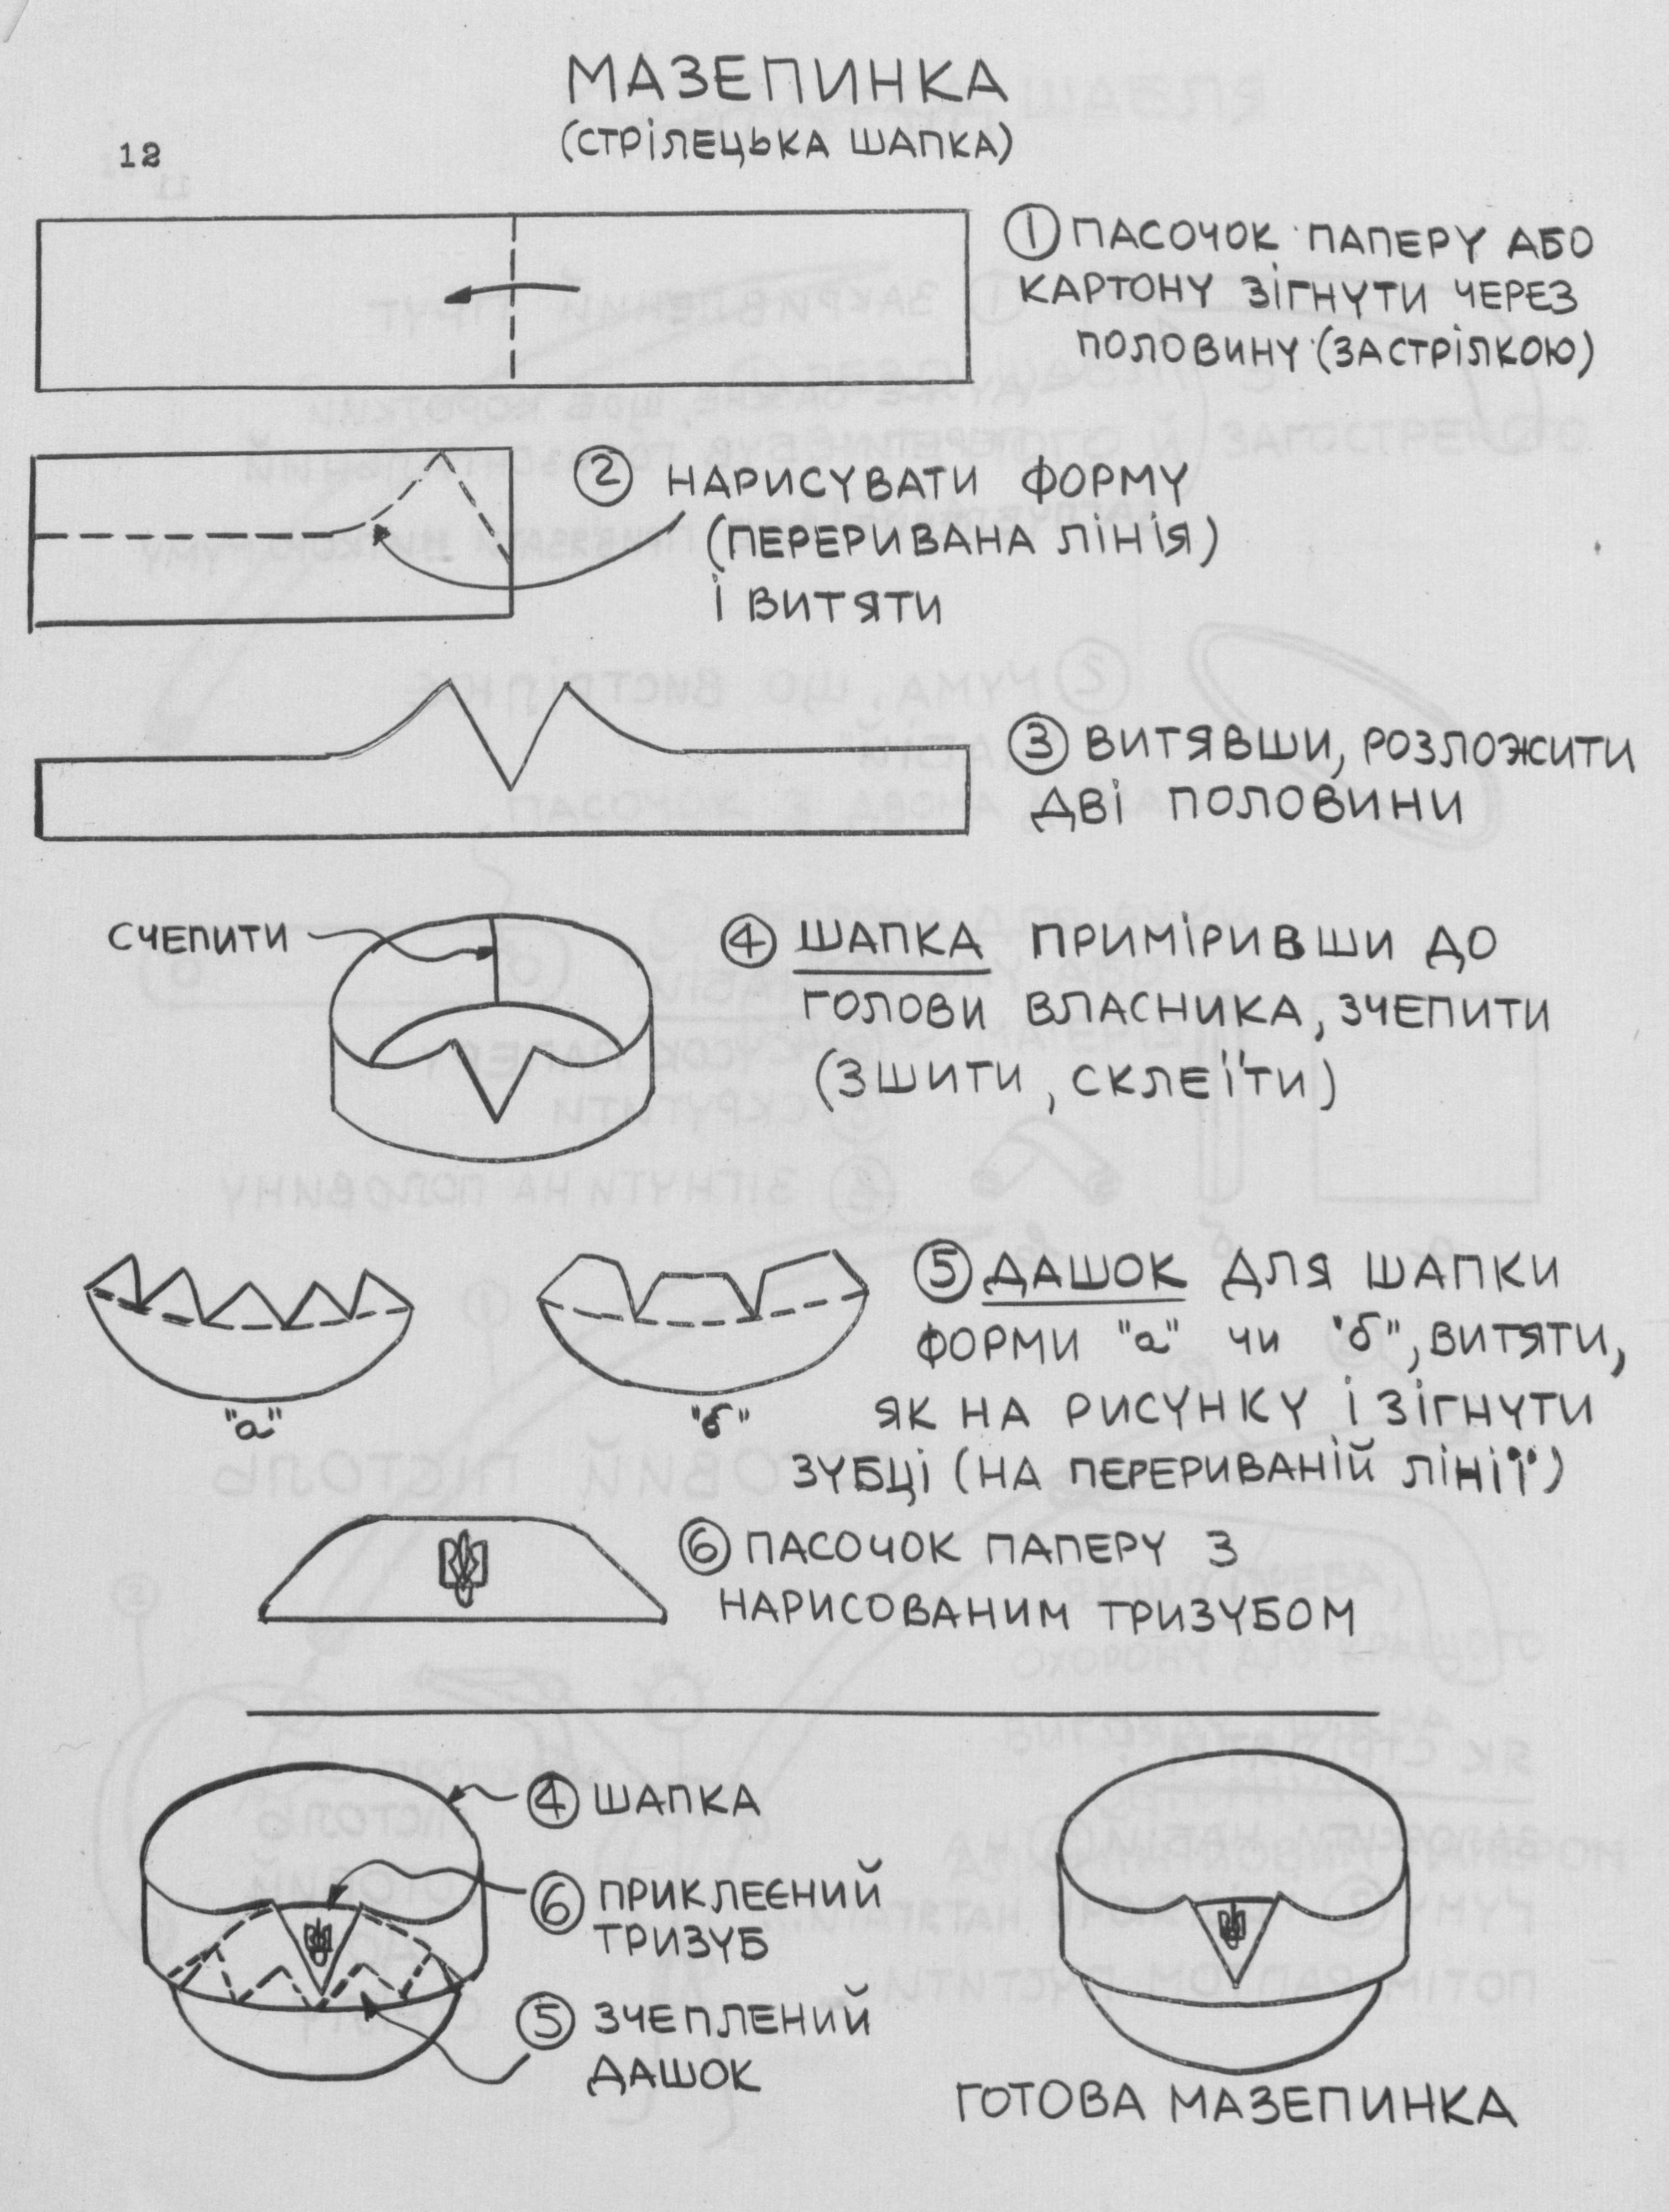 МАЗЕПИНКА
(СТРІЛЕЦЬКА ШАПКА)
12
① ПАСОЧОК ПАПЕРУ АБО
КАРТОНУ ЗІГНУТИ ЧЕРЕЗ
ПОЛОВИНУ (ЗА СТРІЛКОЮ)
② НАРИСУВАТИ ФОРМУ
(ПЕРЕРИВАНА ЛІНІЯ)
І ВИТЯТИ
③ ВИТЯВШИ, РОЗЛОЖИТИ
ДВІ ПОЛОВИНИ
СЧЕПИТИ
④ ШАПКА ПРИМІРИВШИ ДО
ГОЛОВИ ВЛАСНИКА, ЗЧЕПИТИ
(ЗШИТИ, СКЛЕЇТИ)
"а"
"б"
⑤ ДАШОК ДЛЯ ШАПКИ
ФОРМИ "а" ЧИ "б", ВИТЯТИ,
ЯК НА РИСУНКУ І ЗІГНУТИ
ЗУБЦІ (НА ПЕРЕРИВАНІЙ ЛІНІЇ)
⑥ ПАСОЧОК ПАПЕРУ З
НАРИСОВАНИМ ТРИЗУБОМ
④ ШАПКА
⑥ ПРИКЛЕЄНИЙ
ТРИЗУБ
⑤ ЗЧЕПЛЕНИЙ
ДАШОК
ГОТОВА МАЗЕПИНКА